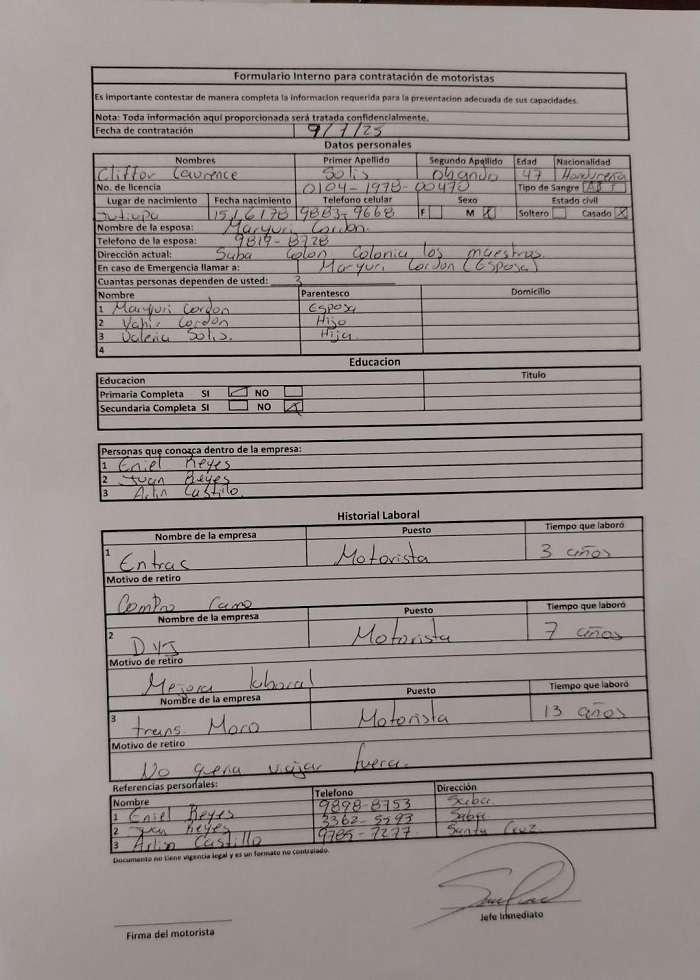 Formulario Interno para contratación de motoristas
Es importante contestar de manera completa la informacion requerida para la presentacion adecuada de sus capacidades.
Nota: Toda información aqui proporcionada será tratada confidencialmente.
Fecha de contratación 9/7/25
Datos personales
Nombres Primer Apellido Segundo Apellido Edad Nacionalidad
Cliffor Lawrence Solis Obando 47 Hondureña
No. de licencia 0104-1978-00470 Tipo de Sangre
Lugar de nacimiento Fecha nacimiento Telefono celular Sexo Estado civil
Jutiapa 15/6/78 9883-9668 F M X Soltero Casado X
Nombre de la esposa: Maryuri Cordon.
Telefono de la esposa: 9819-8728
Dirección actual: Saba Colon. Colonia los maestros.
En caso de Emergencia llamar a: Maryuri Cordon (Esposa)
Cuantas personas dependen de usted: 3
Nombre Parentesco Domicilio
1 Maryuri Cordon Esposa
2 Yahir Cordon Hijo
3 Valeria Solis. Hija
4
Educacion
Educacion Titulo
Primaria Completa SI NO
Secundaria Completa SI NO X
Personas que conozca dentro de la empresa:
1 Eniel Reyes
2 Juan Reyes
3 Arlin Castillo
Historial Laboral
Nombre de la empresa Puesto Tiempo que laboró
1 Entrac Motorista 3 años
Motivo de retiro
Compro Carro
Nombre de la empresa Puesto Tiempo que laboró
2 DYJ Motorista 7 años
Motivo de retiro
Mejora laboral
Nombre de la empresa Puesto Tiempo que laboró
3 trans. Moro Motorista 13 años
Motivo de retiro
No queria viajar fuera.
Referencias personales:
Nombre Telefono Dirección
1 Eniel Reyes 9898-8753 Saba
2 Juan Reyes 3362-5293 Saba
3 Arlin Castillo 9785-7277 Santa Cruz
Documento no tiene vigencia legal y es un formato no controlado.
Jefe Inmediato
Firma del motorista